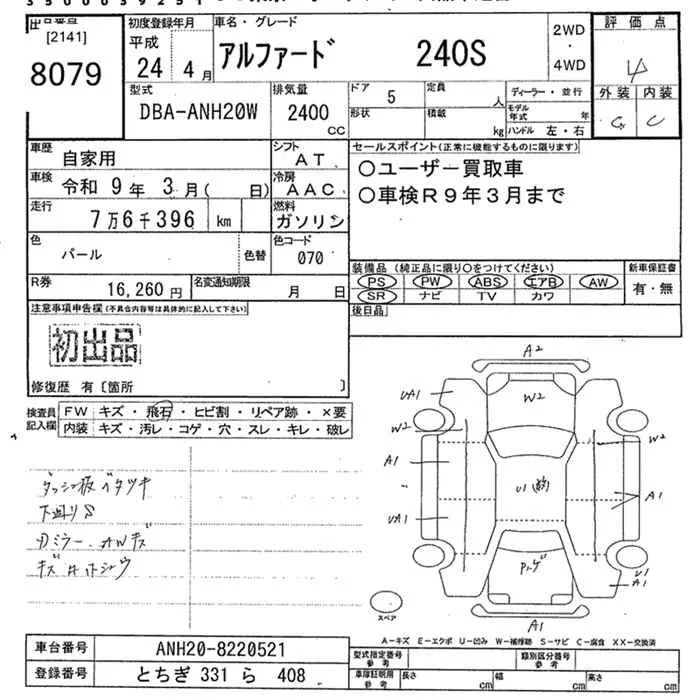 3500039251
出品番号
[2141]
8079
初度登録年月
平成
24 4月
車名・グレード
アルファード 240S
2WD
・
4WD
評価点
4
外装 内装
C C
型式
DBA-ANH20W
排気量
2400
CC
ドア 5
形状
定員 人
積載 kg
ディーラー・並行
モデル年式 年
ハンドル 左・右
車歴 自家用
シフト AT
車検 令和 9年 3月( 日)
冷房 AAC
走行 7万6千396 km
燃料 ガソリン
色 パール
色替
色コード 070
R券 16,260円
名変通知期限 月 日
セールスポイント(正常に機能するものに限ります)
○ユーザー買取車
○車検R9年3月まで
装備品(純正品に限り○をつけてください)
PS PW ABS エアB AW
SR ナビ TV カワ
新車保証書
有・無
後日品
注意事項申告欄(不具合内容等は具体的に記入して下さい)
初出品
修復歴 有〔箇所 〕
検査員記入欄
FW キズ・飛石・ヒビ割・リペア跡・×要
内装 キズ・汚レ・コゲ・穴・スレ・キレ・破レ
ダッシュ板ベタツキ
下廻りS
ミラー・AWキズ
A2
UA1
W2
W2
W2
A1
A1
UA1
U1
A1
A1
スペア
A-キズ E-エクボ U-凹み W-補修跡 S-サビ C-腐食 XX-交換済
車台番号 ANH20-8220521
登録番号 とちぎ 331 ら 408
型式指定番号 参考
類別区分番号 参考
車庫証明用 参考
長さ cm
幅 cm
高さ cm